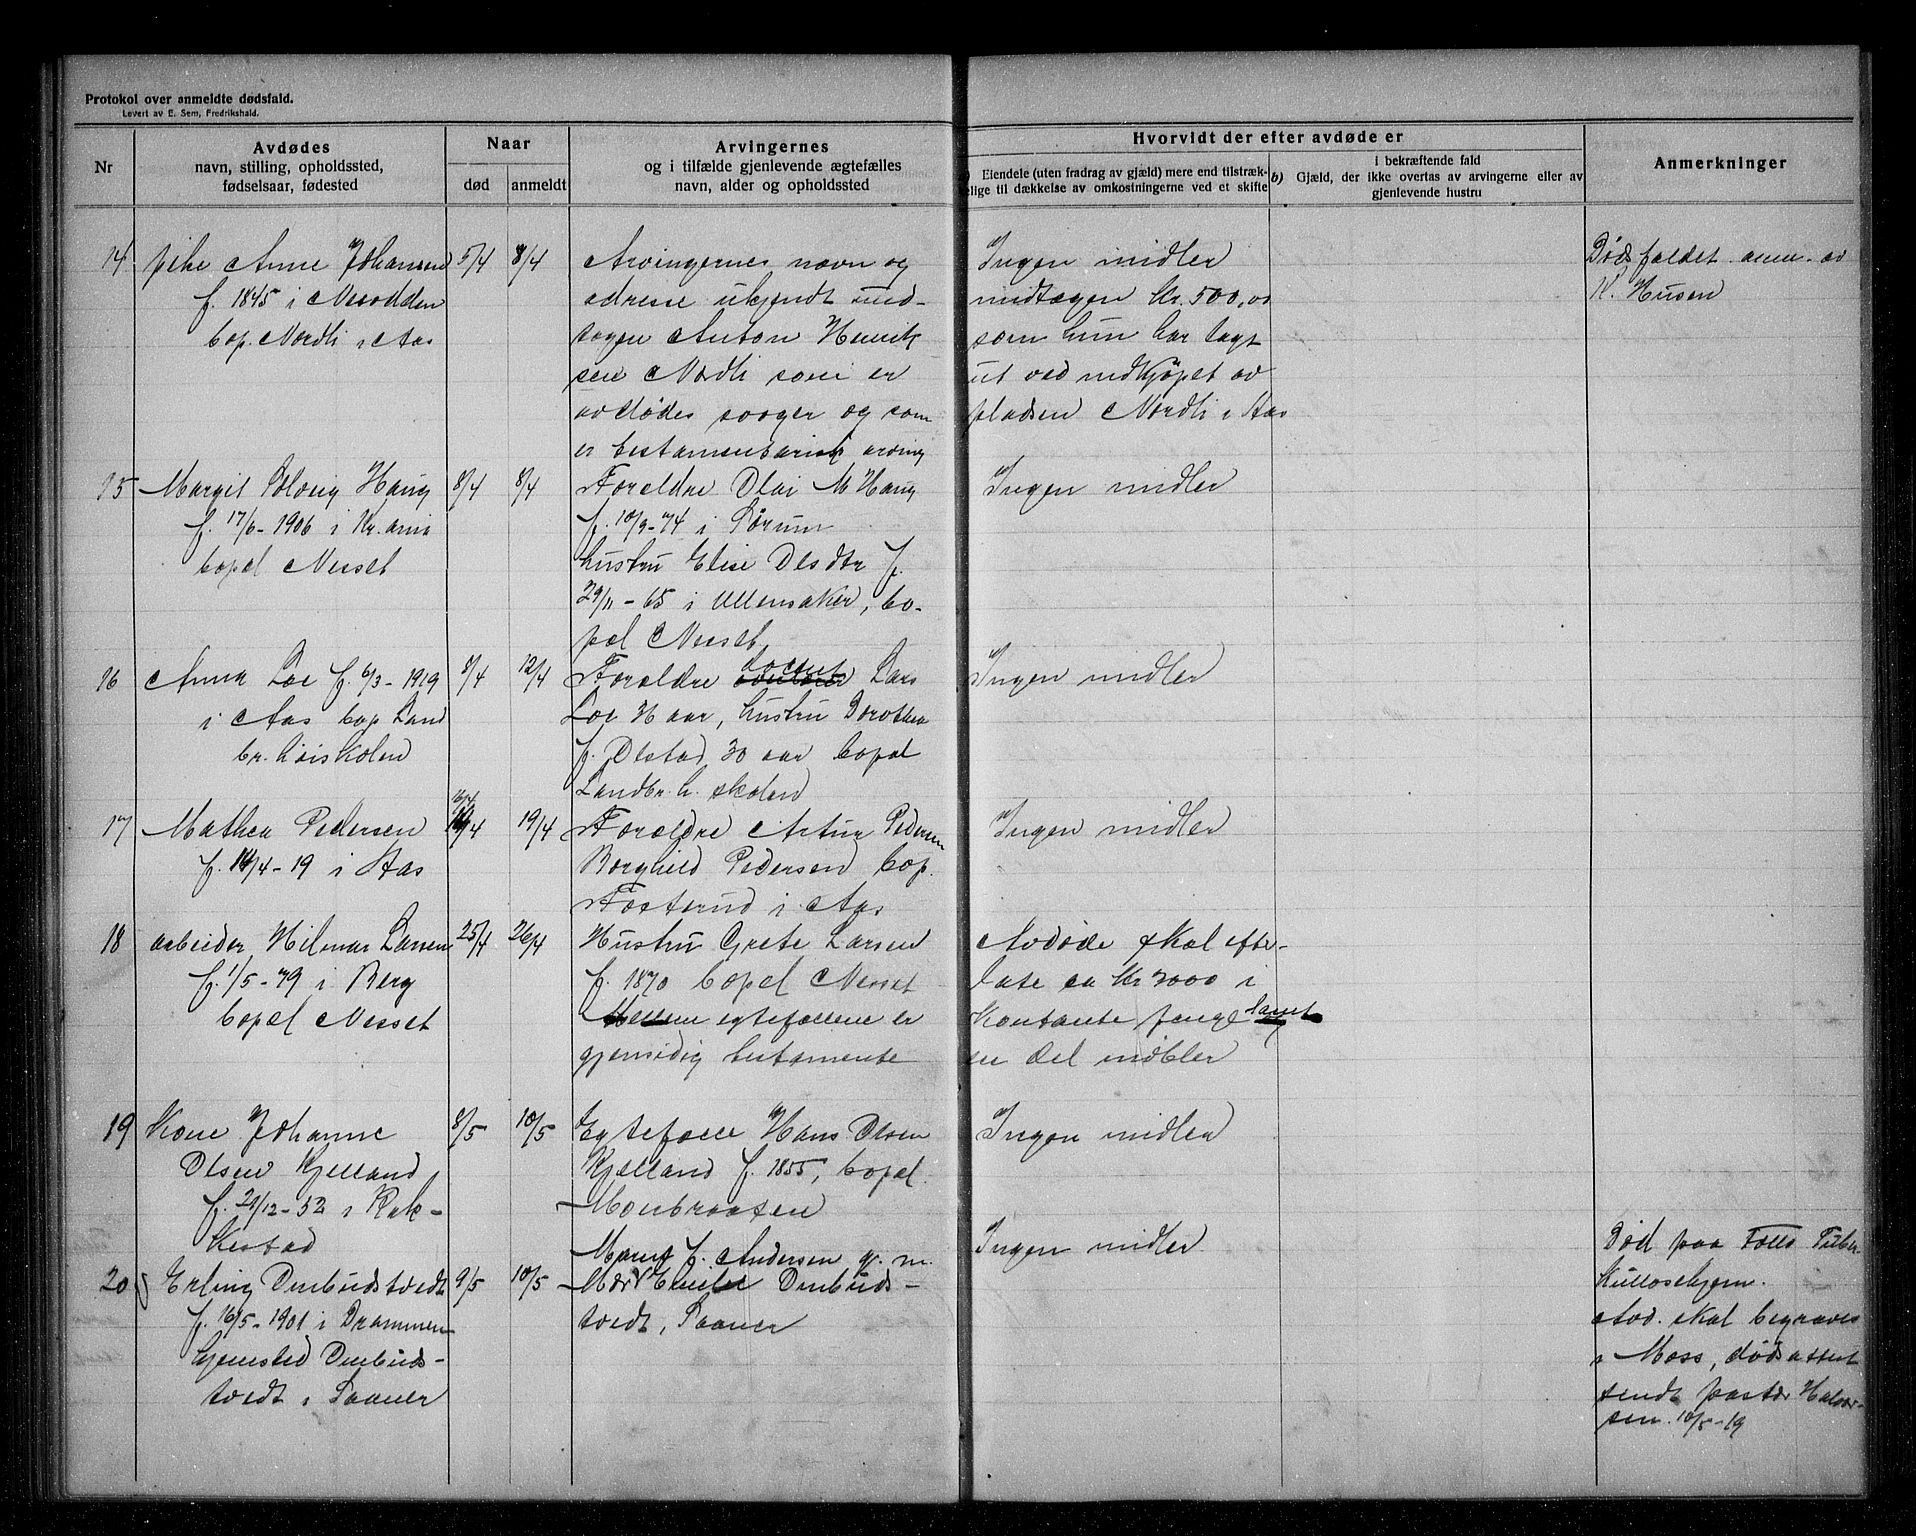 Protokol over anmeldte dødsfald.
Levert av E. Sem, Fredrikshald.
Nr
Avdødes
navn, stilling, opholdssted,
fødselsaar, fødested
Naar
død
anmeldt
Arvingernes
og i tilfælde gjenlevende ægtefælles
navn, alder og opholdssted
Hvorvidt der efter avdøde er
Eiendele (uten fradrag av gjæld) mere end tilstræk-
elige til dækkelse av omkostningerne ved et skifte
b)
i bekræftende fald
Gjæld, der ikke overtas av arvingerne eller av
gjenlevende hustru
Anmerkninger
14
pike Anne Johansen
f. 1845 i Nesodden
bop. Nordli i Aas
5/4
8/4
Arvingernes navn og
adresse ukjendt und-
tagen Anton Henrik
sen Nordli som er
avdødes svoger og som
er testamentarisk arving
Ingen midler
undtagen kr. 500,00
som hun har lagt
ut ved indkjøpet av
pladsen Nordli i Aas
Dødsfaldet anm. av
K. Husen
15
Margit Solveig Haug
f. 17/6-1906 i Kr.ania
bopel Nesset
8/4
8/4
Forældre Olai M Haug
f. 10/9-74 i Sørum
hustru Elise Olsdtr f.
29/11-65 i Ullensaker, bo-
pæl Nesset
Ingen midler
16
Anna Loe f. 6/3-1919
i Aas bop Land
br. høiskolen
8/4
12/4
Forældre docent Lars
Loe aar, hustru Dorothea
f. Olstad 30 aar bopæl
Landbr. h. skolen
Ingen midler
17
Mathea Pedersen
f. 14/4-19 i Aas
16/4
19/4
Forældre Artur Pedersen
Borghild Pedersen bop.
Fosterud i Aas
Ingen midler
18
arbeider Hilmar Larsen
f. 1/5-79 i Berg
bopæl Nesset
25/4
26/4
Hustru Grete Larsen
f. 1870 bopel Nesset
Mellem egtefællene er
gjensidig testamente
Avdøde skal efter-
late ca kr 3000 i
kontante penge samt
en del møbler
19
Kone Johanne
Olsen Kjelland,
f. 21/12-52 i Rak-
kestad
8/5
10/5
Egtefælle Hans Olsen
Kjelland f. 1855, bopæl
Monbraaten
Ingen midler
20
Erling Ombudstvedt
f. 16/5-1901 i Drammen
hjemsted Ombuds-
tvedt i Saaner
9/5
10/5
f. Andersen g. m.
Ombuds-
tvedt, Saaner
Ingen midler
Død paa Follo Tuber
kulosehjem.
Avd. skal begraves
i Moss, dødsattest
sendt pastor Halvor-
sen. 10/5-19